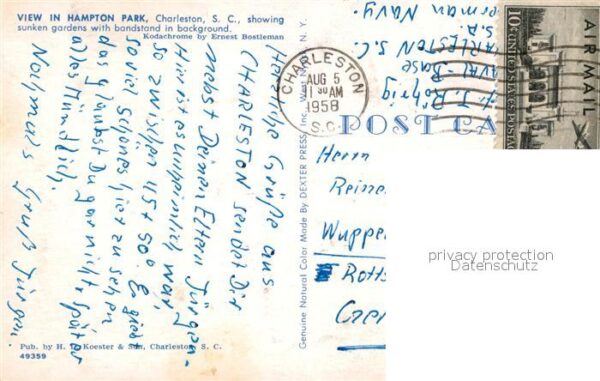 VIEW IN HAMPTON PARK, Charleston, S. C., showing
sunken gardens with bandstand in background.
Kodachrome by Ernest Bostleman
Herzliche Grüße aus
CHARLESTON sendet Dir
nebst Deinen Eltern Jürgen.
Hier ist es unheimlich war
so zwischen 45 + 50°. Es giebt
so viel Schönes hier zu sehen
das glaubst Du gar nicht. Später
alles Mündlich.
Nochmals Gruß Jürgen.
Pub. by H. Koester & Son, Charleston, S. C.
49359
Genuine Natural Color Made By DEXTER PRESS, Inc. West N. Y.
CHARLESTON
AUG 5
11 30 AM
1958
S.C.
POST CA
H. J. Röhrig
Base
CHARLESTON S.C.
S.A.
erman Navy.
AIR MAIL
10¢ UNITED STATES POSTAGE
Herrn
Reine
Wuppe
Rott
privacy protection
Datenschutz